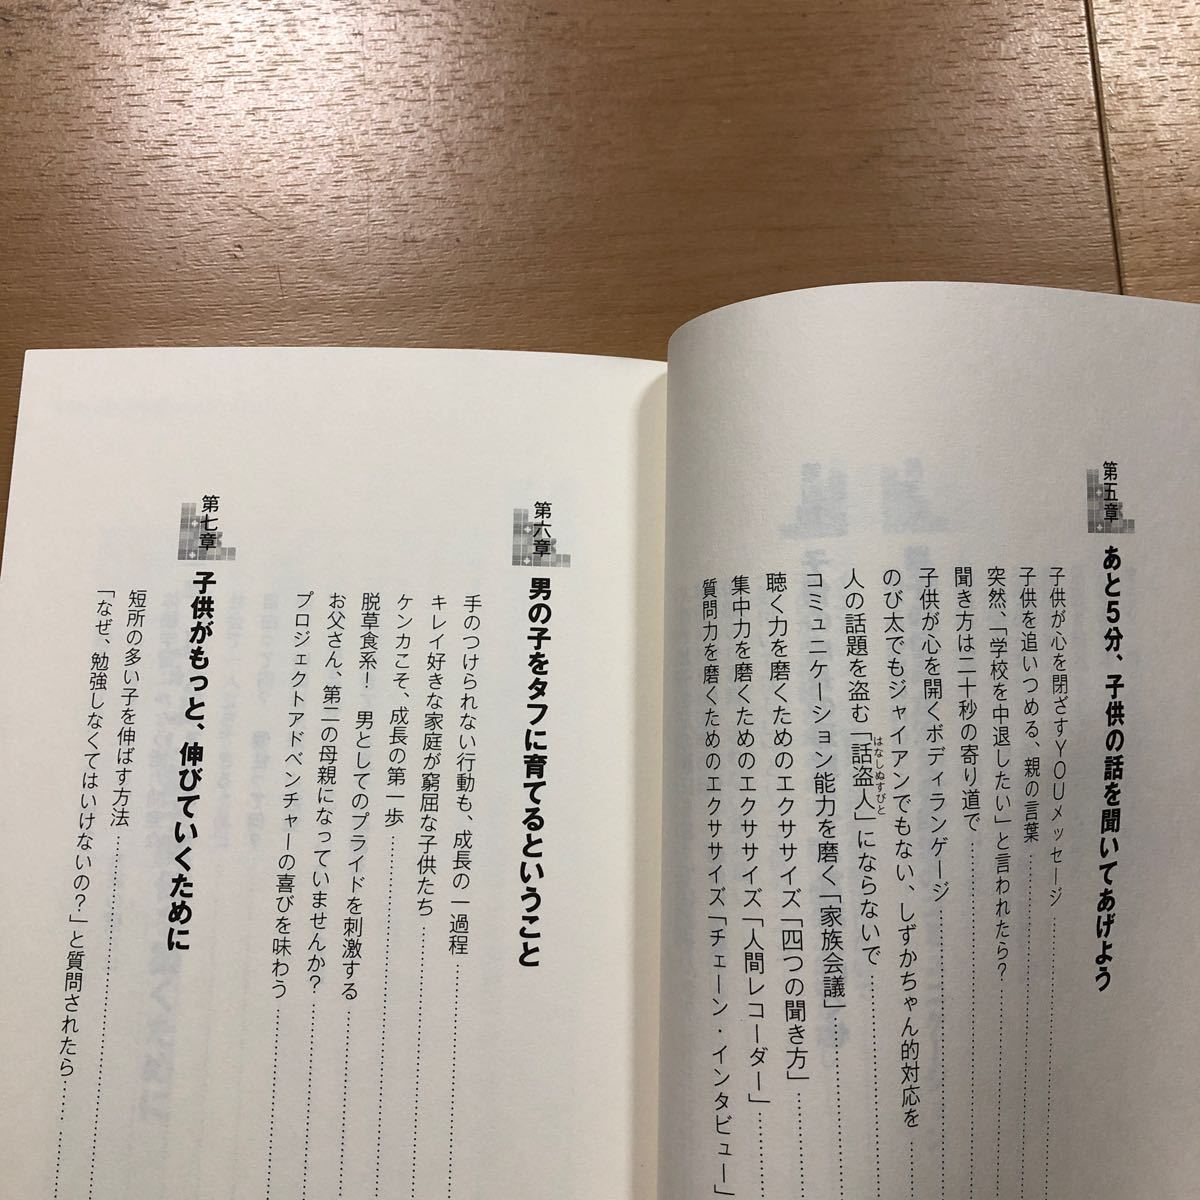 第五章
あと5分、子供の話を聞いてあげよう
子供が心を閉ざすYOUメッセージ
子供を追いつめる、親の言葉
突然、「学校を中退したい」と言われたら?
聞き方は二十秒の寄り道で
子供が心を開くボディランゲージ
のび太でもジャイアンでもない、しずかちゃん的対応を
人の話題を盗む「話盗人」にならないで
はなしぬすびと
コミュニケーション能力を磨く「家族会議」
聴く力を磨くためのエクササイズ「四つの聞き方」
集中力を磨くためのエクササイズ「人間レコーダー」
質問力を磨くためのエクササイズ「チェーン・インタビュー」
第六章
男の子をタフに育てるということ
手のつけられない行動も、成長の一過程
キレイ好きな家庭が窮屈な子供たち
ケンカこそ、成長の第一歩
脱草食系! 男としてのプライドを刺激する
お父さん、第二の母親になっていませんか?
プロジェクトアドベンチャーの喜びを味わう
第七章
子供がもっと、伸びていくために
短所の多い子を伸ばす方法
「なぜ、勉強しなくてはいけないの?」と質問されたら